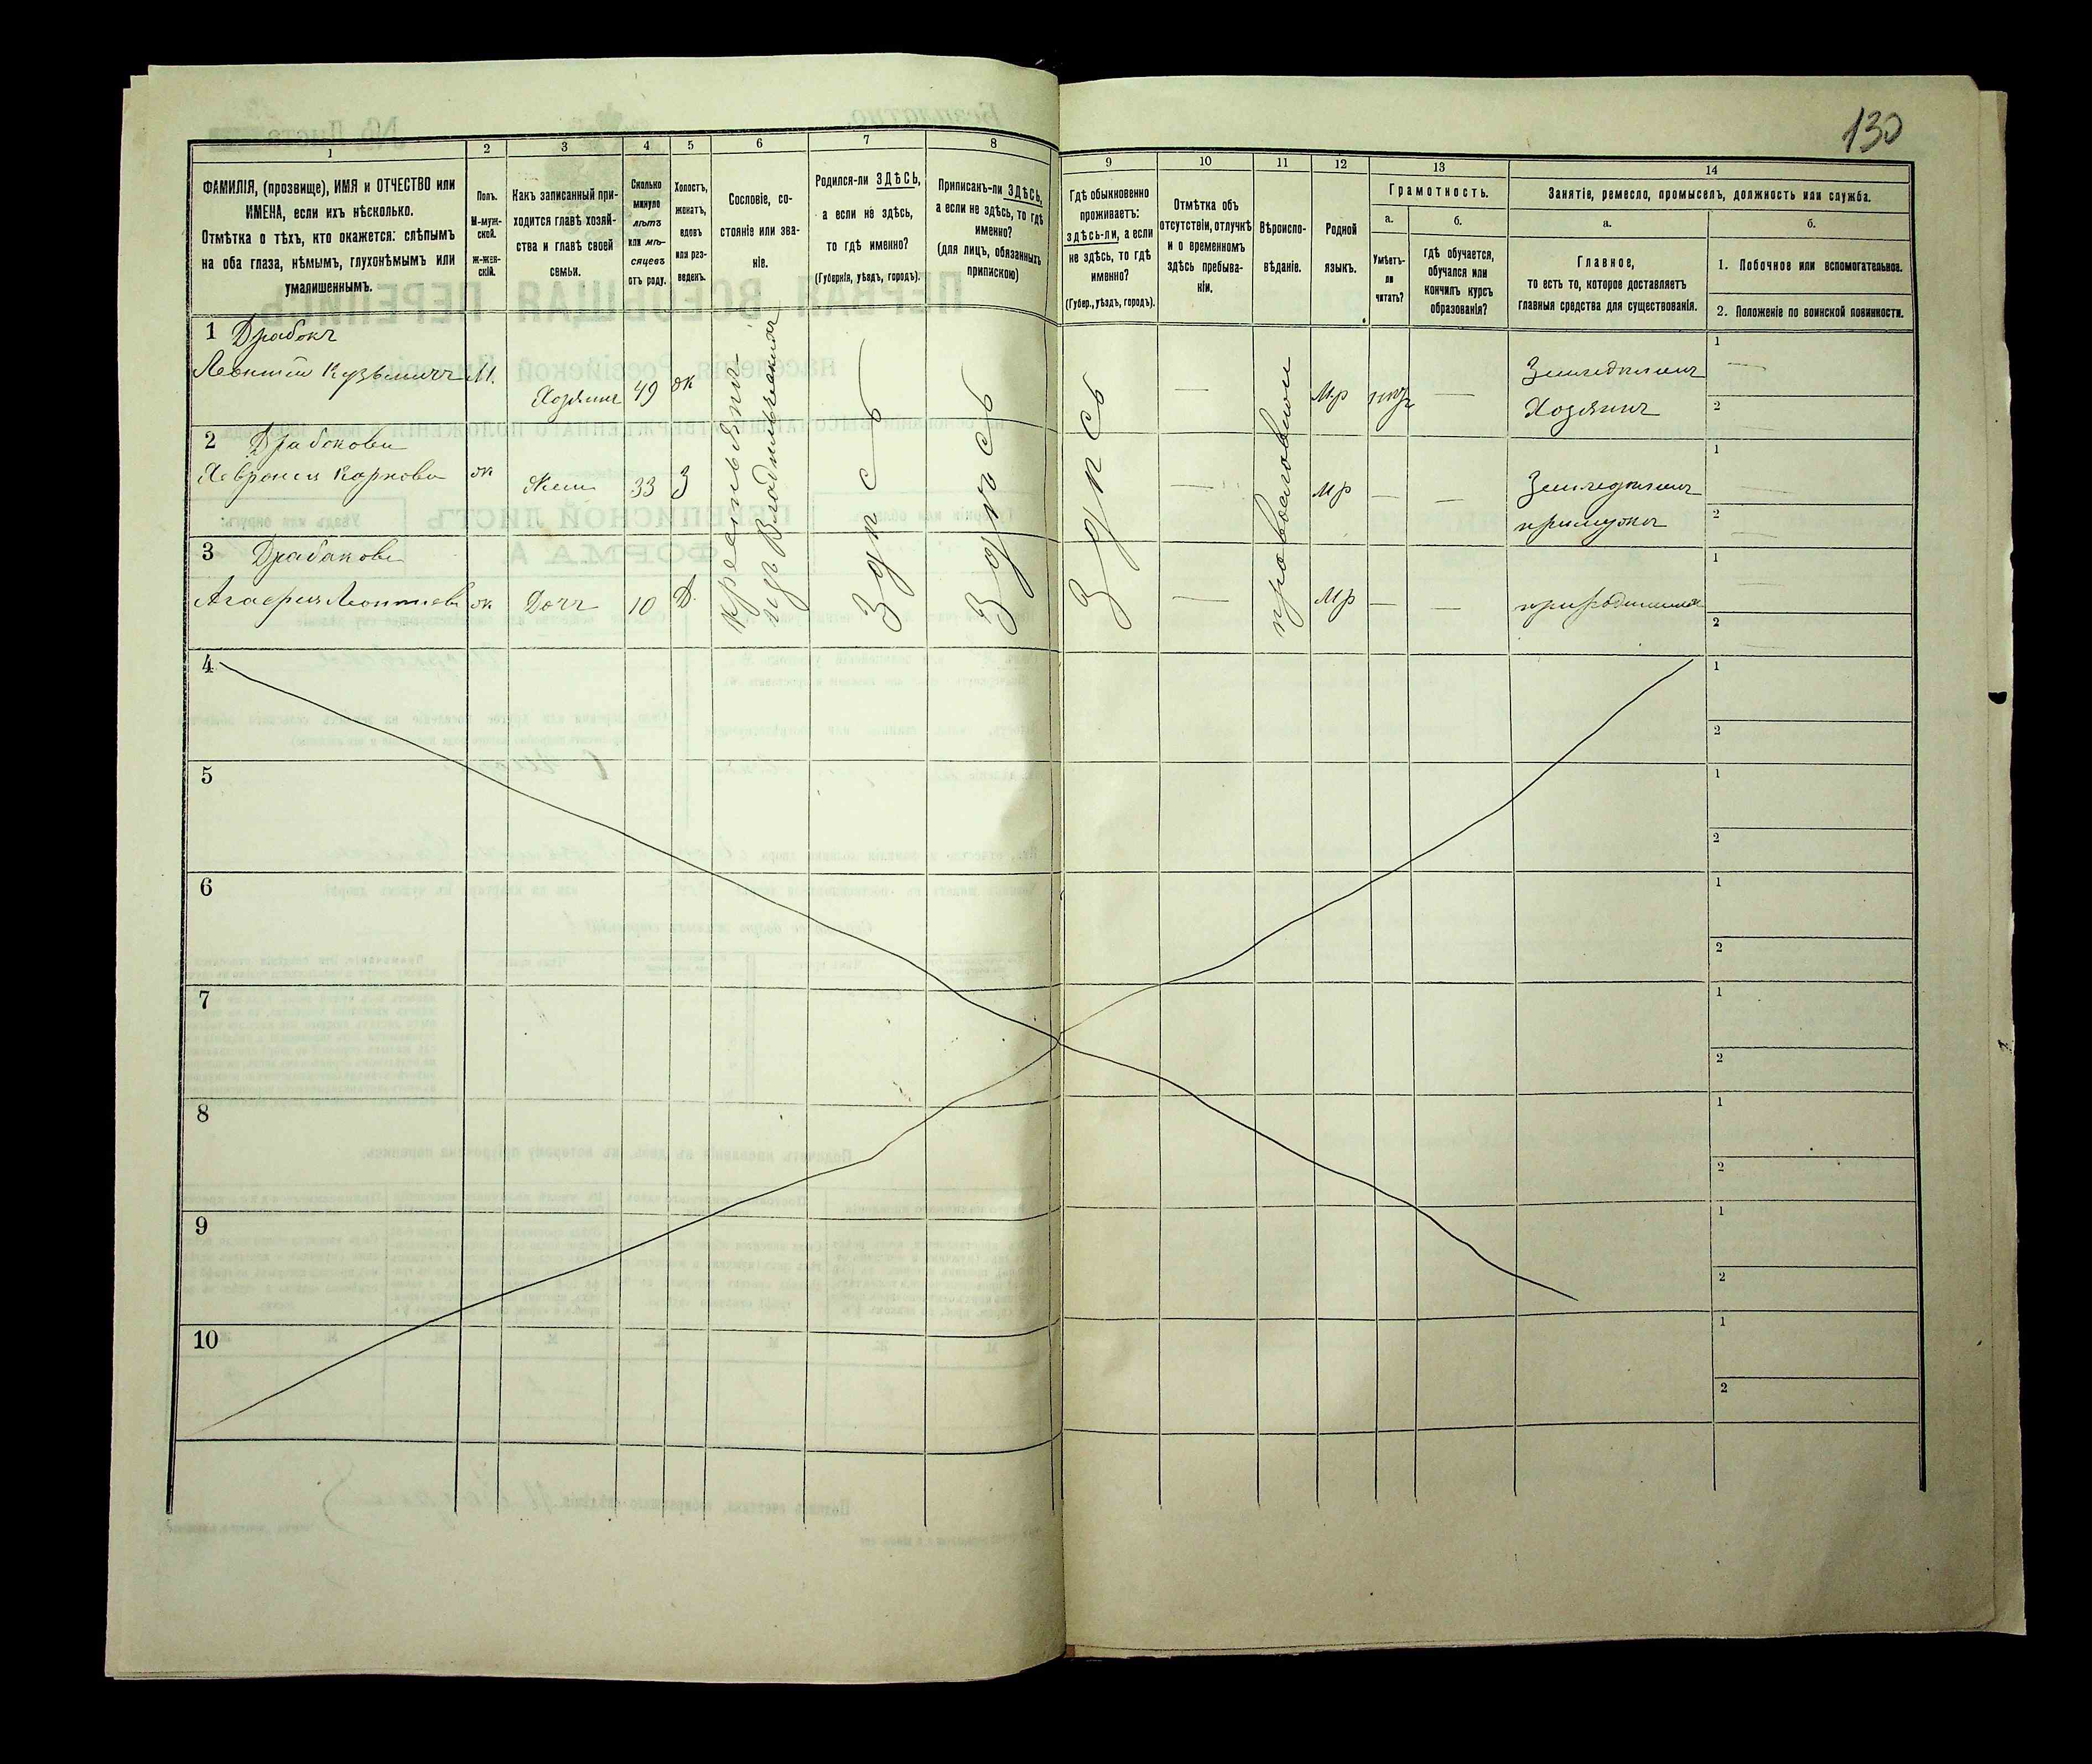 130
1
ФАМИЛІЯ, (прозвище), ИМЯ и ОТЧЕСТВО или
ИМЕНА, если ихъ нѣсколько.
Отмѣтка о тѣхъ, кто окажется: слѣпымъ
на оба глаза, нѣмымъ, глухонѣмымъ или
умалишеннымъ.
2
Полъ.
М-муж-
ской.
Ж-жен-
скій.
3
Какъ записанный при-
ходится главѣ хозяй-
ства и главѣ своей
семьи.
4
Сколько
минуло
лѣтъ
или мѣ-
сяцевъ
отъ роду.
5
Холостъ,
женатъ,
вдовъ
или раз-
веденъ.
6
Сословіе, со-
стояніе или зва-
ніе.
7
Родился-ли ЗДѢСЬ,
а если не здѣсь,
то гдѣ именно?
(Губернія, уѣздъ, городъ).
8
Приписанъ-ли ЗДѢСЬ,
а если не здѣсь, то гдѣ
именно?
(для лицъ, обязанныхъ
припискою)
9
Гдѣ обыкновенно
проживаетъ:
здѣсь-ли, а если
не здѣсь, то гдѣ
именно?
(Губер., уѣздъ, городъ).
10
Отмѣтка объ
отсутствіи, отлучкѣ
и о временномъ
здѣсь пребыва-
ніи.
11
Вѣроиспо-
вѣданіе.
12
Родной
языкъ.
13
Грамотность.
а.
Умѣетъ-
ли
читать?
б.
гдѣ обучается,
обучался или
кончилъ курсъ
образованія?
14
Занятіе, ремесло, промыселъ, должность или служба.
а.
Главное,
то есть то, которое доставляетъ
главныя средства для существованія.
б.
1. Побочное или вспомогательное.
2. Положеніе по воинской повинности.
1 Драбокъ
Леонтій Кузьмичъ М. Хозяинъ 49 ж
Мр
Земледѣлие
Хозяинъ
1
2
2 Драбокова
Хевронія Карпова ж Жена 33 З
Мр
Земледѣлие
при мужѣ
1
2
3 Драбокова
Агафія Леонтиева ж Дочь 10 Д.
Мр
1
2
Здѣсь
Здѣсь
Здѣсь
православной
4
1
2
5
1
2
6
1
2
7
1
2
8
1
2
9
1
2
10
1
2